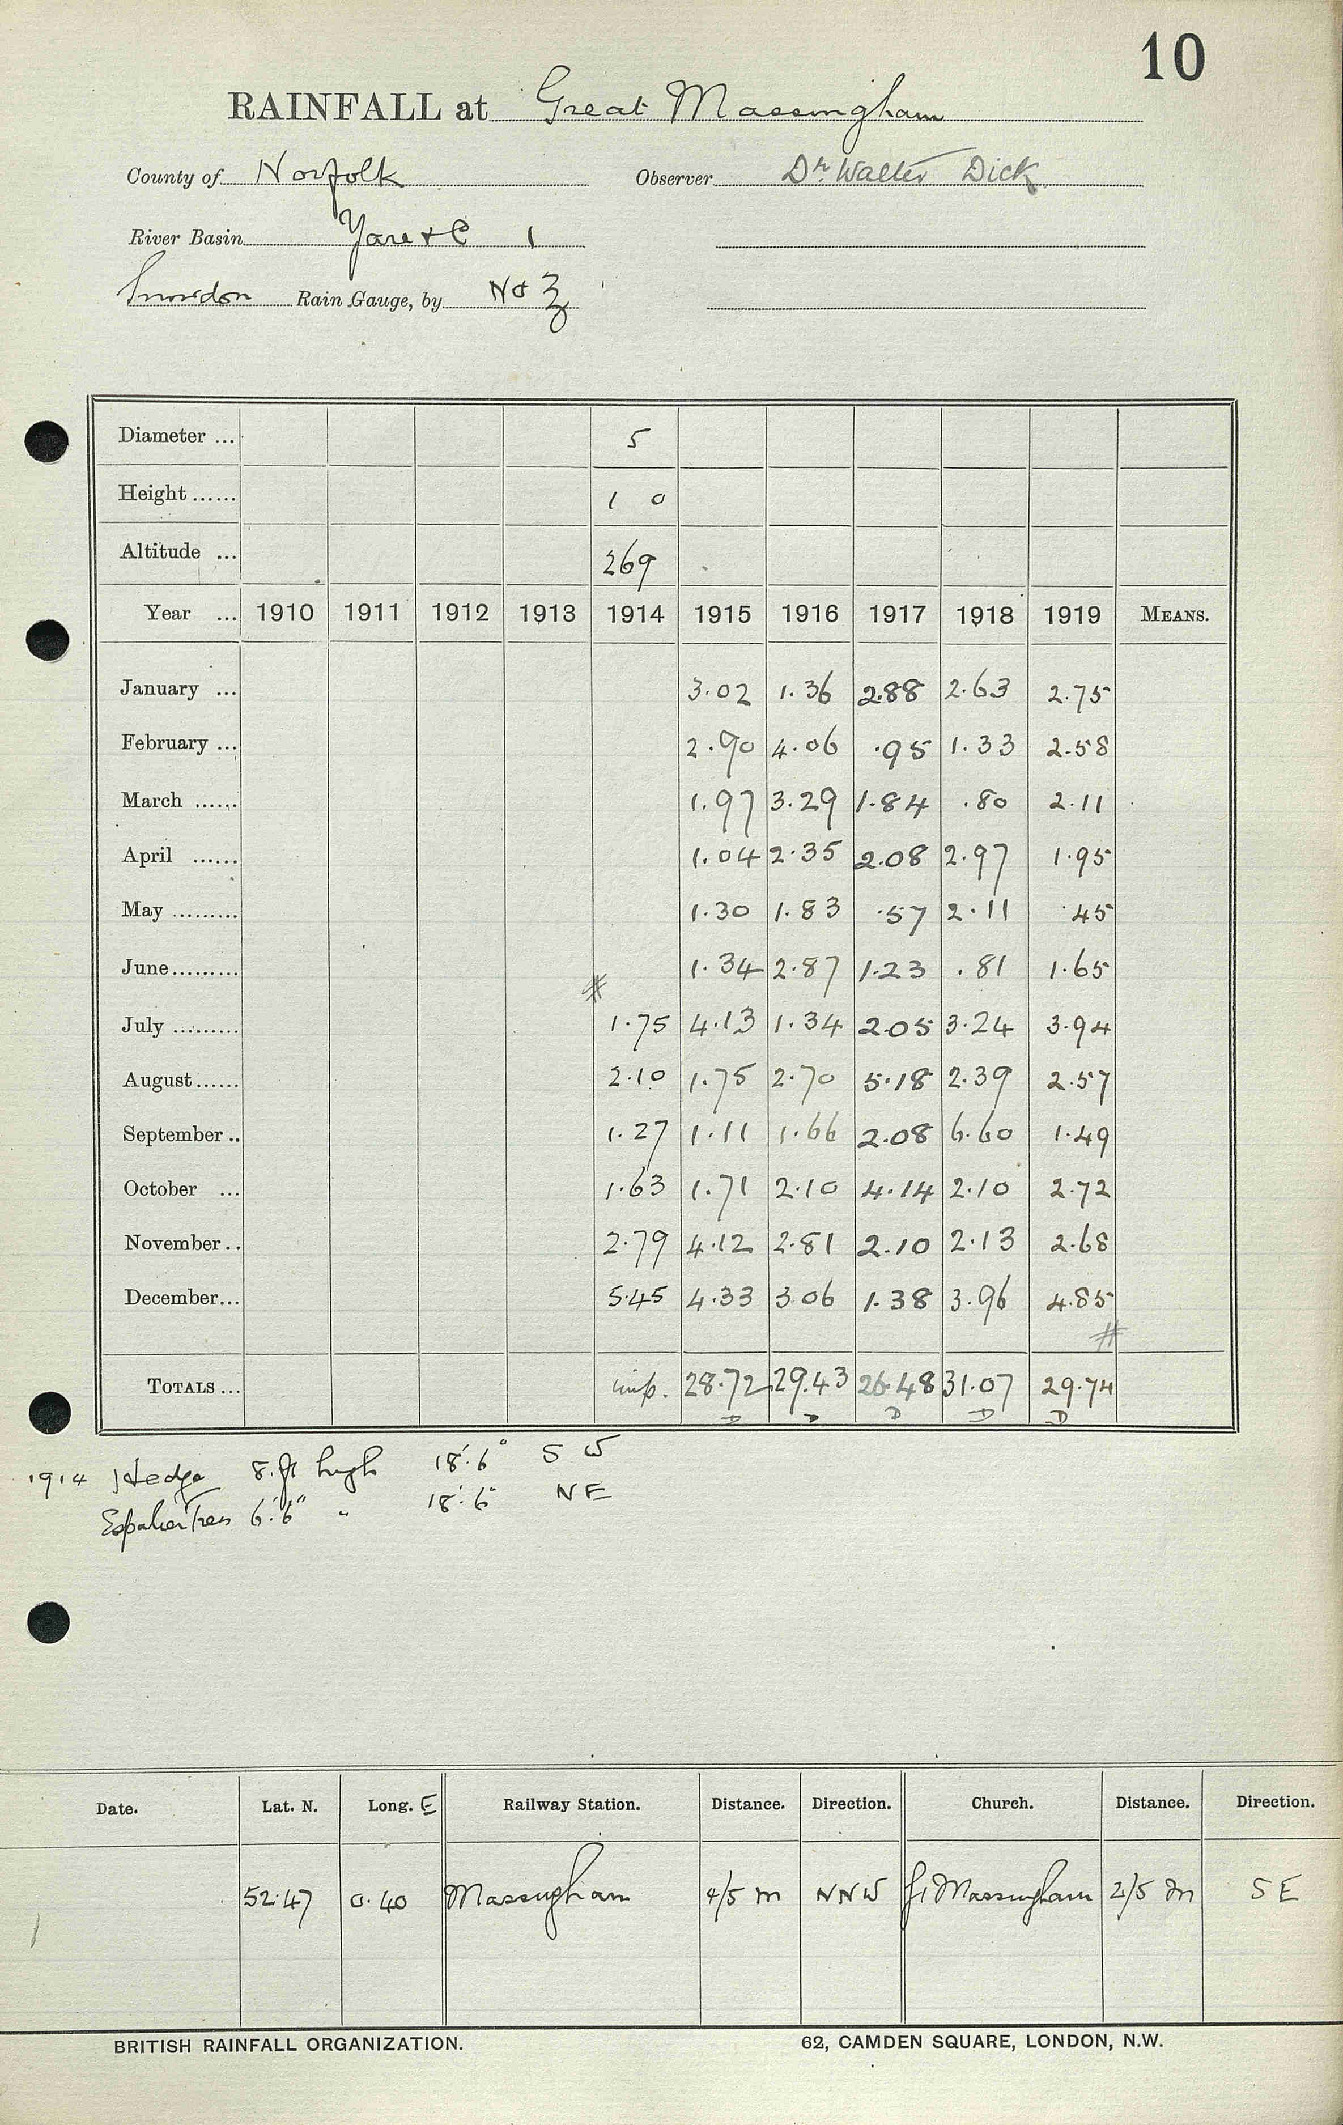 10
RAINFALL at Great Massingham
County of Norfolk Observer Dr Walter Dick
River Basin Yare &c 1
Snowdon Rain Gauge, by No 3
Diameter ... 5
Height ...... 1 0
Altitude ... 269
Year ... 1910 1911 1912 1913 1914 1915 1916 1917 1918 1919 MEANS.
January ... 3.02 1.36 2.88 2.63 2.75
February ... 2.90 4.06 .95 1.33 2.58
March ...... 1.97 3.29 1.84 .80 2.11
April ...... 1.04 2.35 2.08 2.97 1.95
May ......... 1.30 1.83 .57 2.11 .45
June......... 1.34 2.87 1.23 .81 1.65
#
July ......... 1.75 4.13 1.34 2.05 3.24 3.94
August...... 2.10 1.75 2.70 5.18 2.39 2.57
September .. 1.27 1.11 1.66 2.08 6.60 1.49
October ... 1.63 1.71 2.10 4.14 2.10 2.72
November .. 2.79 4.12 2.81 2.10 2.13 2.68
December... 5.45 4.33 3.06 1.38 3.96 4.85
#
TOTALS ... imp. 28.72 29.43 26.48 31.07 29.74
D D D D D
1914 Hedge 8.ft high 18'.6" S W
Espalier Trees 6'.6" " 18'.6" NE
Date. Lat. N. Long. E Railway Station. Distance. Direction. Church. Distance. Direction.
52.47 0.40 Massingham 4/5 m NNW Gt Massingham 2/5 m SE
BRITISH RAINFALL ORGANIZATION. 62, CAMDEN SQUARE, LONDON, N.W.